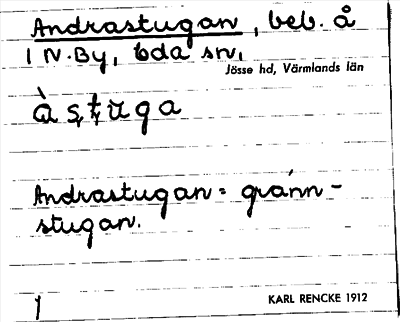 Andrastugan, beb. å
1 N. By, bda sn,
Jösse hd, Värmlands län
àsṭṷga
Andrastugan = grann-
stugan.
KARL RENCKE 1912